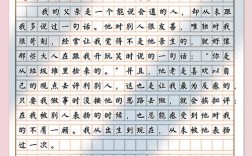 我的父亲是一个能说会道的人，却从未跟
我多说过一句话。他对别人很友善，唯独对我
很苛刻，经常让我觉得不是他亲生的。就好像
那些大人在跟我开玩笑时说的一句话：“你是
从垃圾堆里捡来的。”并且，他老是喜欢以自
己的观点去评判别人，让我感到极为反感的。
只要我做事时没按他的思路去做，就会挨批评
在我被别人表扬的时候，也总能感受到他对我
的不屑一顾。从出生到现在，从未被他表扬
过一次。